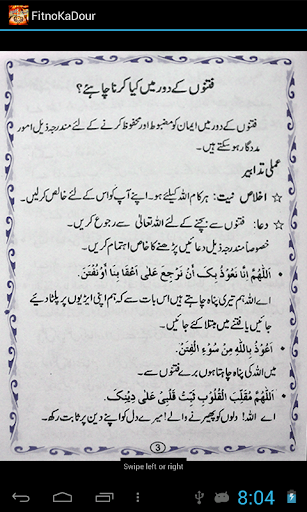 FitnoKaDour
فتنوں کے دور میں کیا کرنا چاہئے؟
فتنوں کے دور میں ایمان کو مضبوط اور محفوظ کرنے کے لئے مندرجہ ذیل امور
مددگار ہو سکتے ہیں۔
عملی تدابیر
☆ اخلاص نیت: ہر کام اللہ کیلئے ہو۔ اپنے آپ کو اس کے لئے خالص کرلیں۔
☆ دعا: فتنوں سے بچنے کے لئے اللہ تعالٰی سے رجوع کریں۔
خصوصاً مندرجہ ذیل دعائیں پڑھنے کا خاص اہتمام کریں۔
• اَللّٰهُمَّ اِنَّا نَعُوْذُ بِکَ اَنْ نَرْجِعَ عَلٰی اَعْقَابِنَا اَوْ نُفْتَنَ.
اے اللہ ہم تیری پناہ چاہتے ہیں اس بات سے کہ ہم اپنی ایڑیوں پر پلٹا دیئے
جائیں یا فتنے میں مبتلا کئے جائیں۔
• اَعُوْذُ بِاللّٰهِ مِنْ سُوْءِ الْفِتَنِ.
میں اللہ کی پناہ چاہتا ہوں برے فتنوں سے۔
• اَللّٰهُمَّ مُقَلِّبَ الْقُلُوْبِ ثَبِّتْ قَلْبِیْ عَلٰی دِیْنِکَ.
اے اللہ! دلوں کو پھیرنے والے! میرے دل کو اپنے دین پر ثابت رکھ۔
3
Swipe left or right
8:04